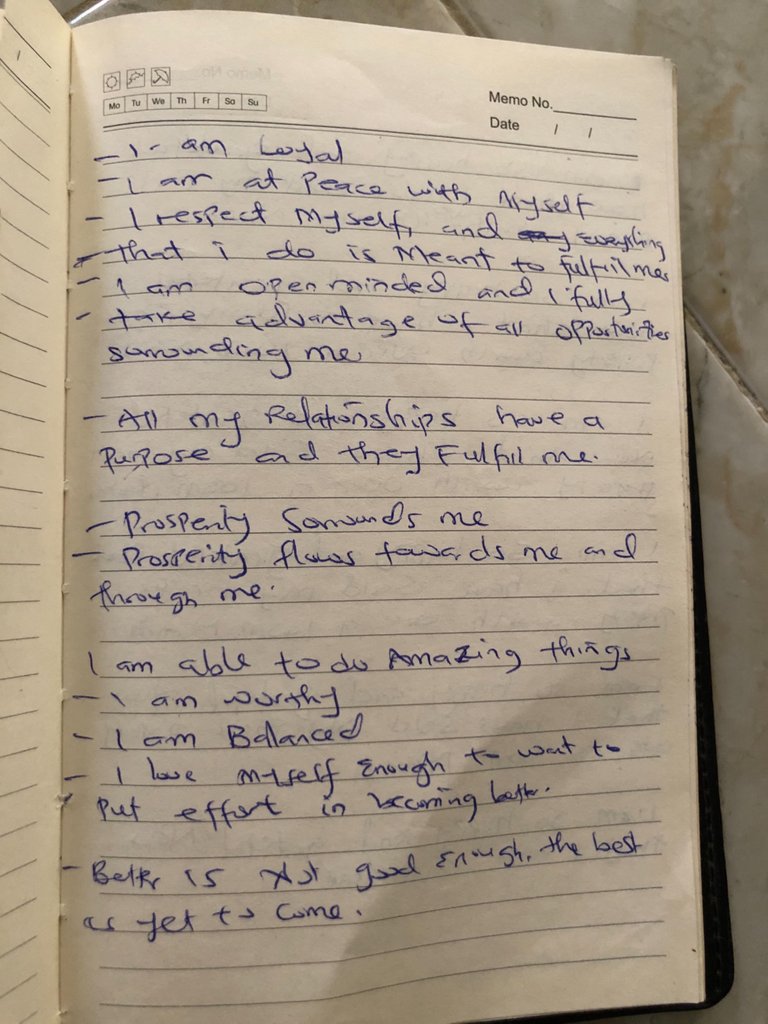 Mo Tu We Th Fr Sa Su
Memo No.
Date / /
- I am Loyal
- I am at Peace with Myself
- I respect Myself, and everything
- that i do is Meant to fulfil me
- I am open minded and I fully
- take advantage of all opportunities
sorrounding me
- All my Relationships have a
Purpose and they Fulfil me.
- Prosperity Sorrounds me
- Prosperity flows towards me and
through me.
I am able to do Amazing things
- I am worthy
- I am Balanced
- I love myself Enough to want to
Put effort in becoming better.
- Better is Not good Enough, the best
is yet to come.